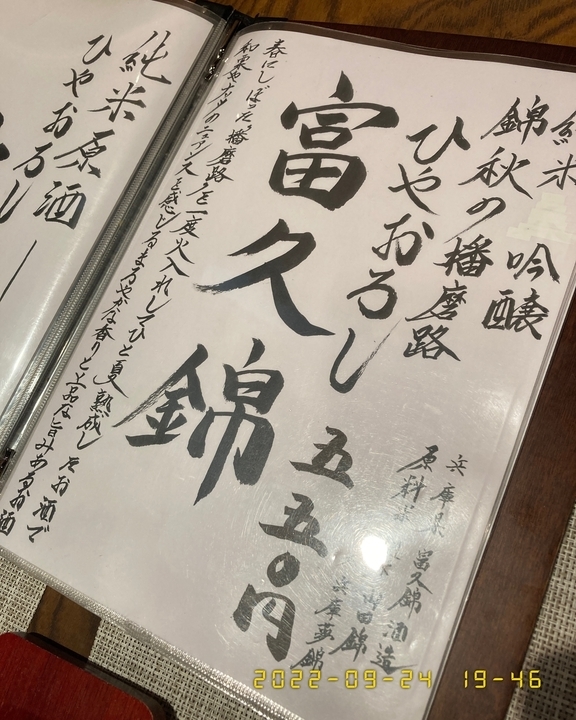 純米 吟醸
錦秋の播磨路
ひやおろし
富久錦
五五〇円
兵庫県 富久錦酒造
原料米
山田錦
兵庫夢錦
春にしぼった「播磨路」を一度火入れしてひと夏熟成したお酒で
和栗やナッツのニュアンスを感じるまろやかな香りと上品な旨みあるお酒
純米原酒
ひやおろし
2022-09-24 19-46